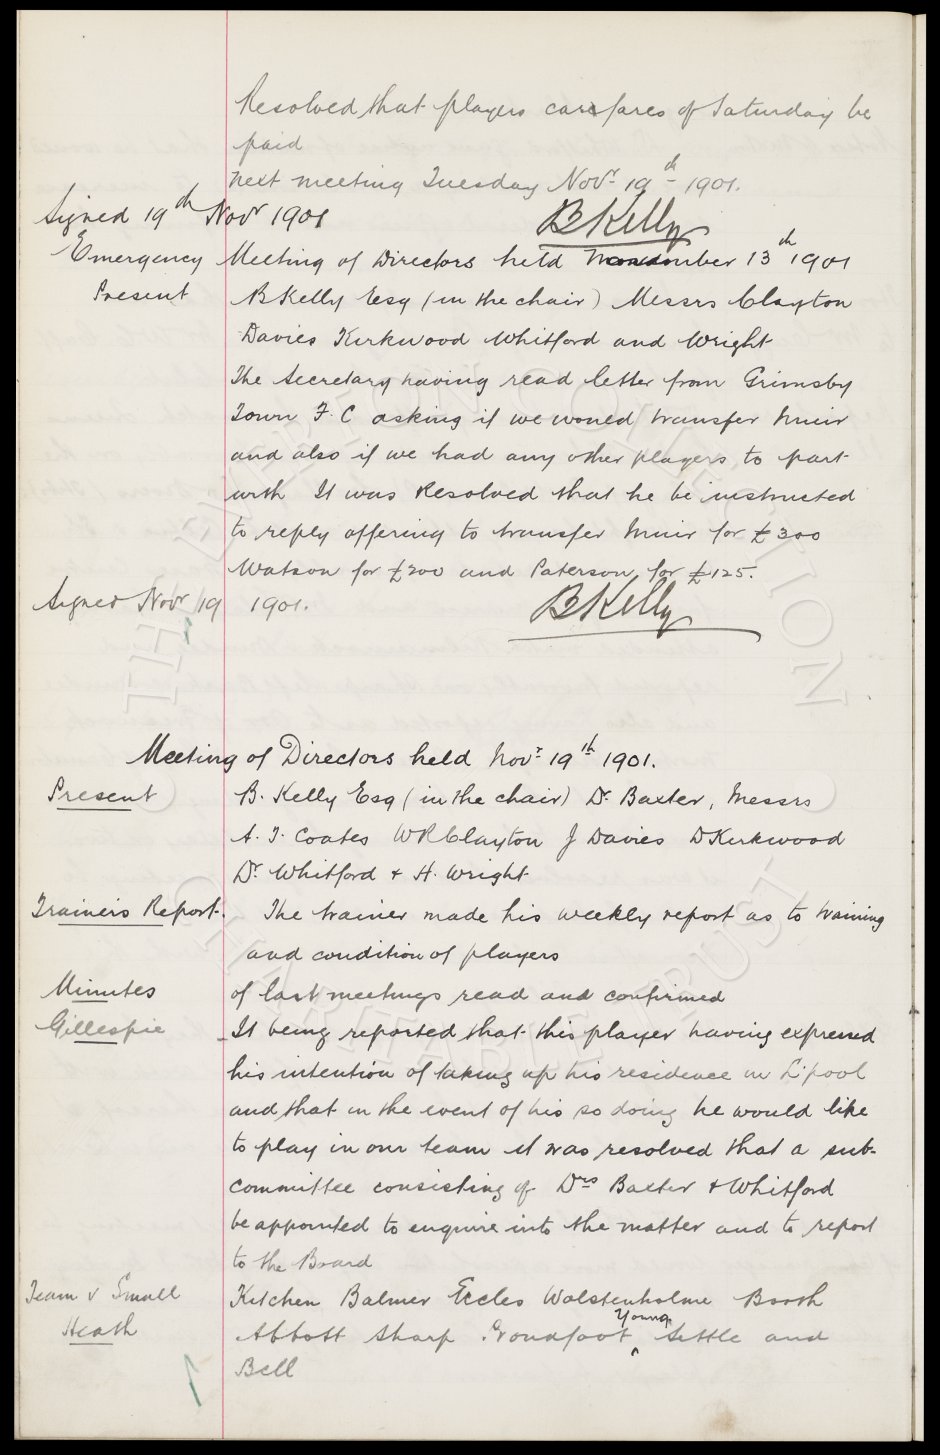 Resolved that players car fares of Saturday be
paid
next meeting Tuesday Novr 19th 1901.
Signed 19th Novr 1901 B Kelly
Emergency Meeting of Directors held November 13th 1901
Present B Kelly Esq (in the chair) Messrs Clayton
Davies Kirkwood Whitford and Wright
The Secretary having read letter from Grimsby
Town F.C asking if we would transfer Muir
and also if we had any other players to part
with It was Resolved that he be instructed
to reply offering to transfer Muir for £300
Watson for £200 and Paterson for £125.
Signed Novr 19 1901. B Kelly
Meeting of Directors held Novr 19th 1901.
Present B. Kelly Esq (in the chair) Dr Baxter, Messrs
A. T. Coates W R Clayton J Davies D Kirkwood
Dr Whitford + H. Wright
Trainers Report. The trainer made his weekly report as to training
and condition of players
Minutes of last meetings read and confirmed
Gillespie It being reported that this player having expressed
his intention of taking up his residence in L'pool
and that in the event of his so doing he would like
to play in our team it was resolved that a sub-
committee consisting of Drs Baxter + Whitford
be appointed to enquire into the matter and to report
to the Board
Team v Small Kitchen Balmer Eccles Wolstenholme Booth
Heath Abbott Sharp Proudfoot Young Settle and
Bell
THE EVERTON COLLECTION CHARITABLE TRUST